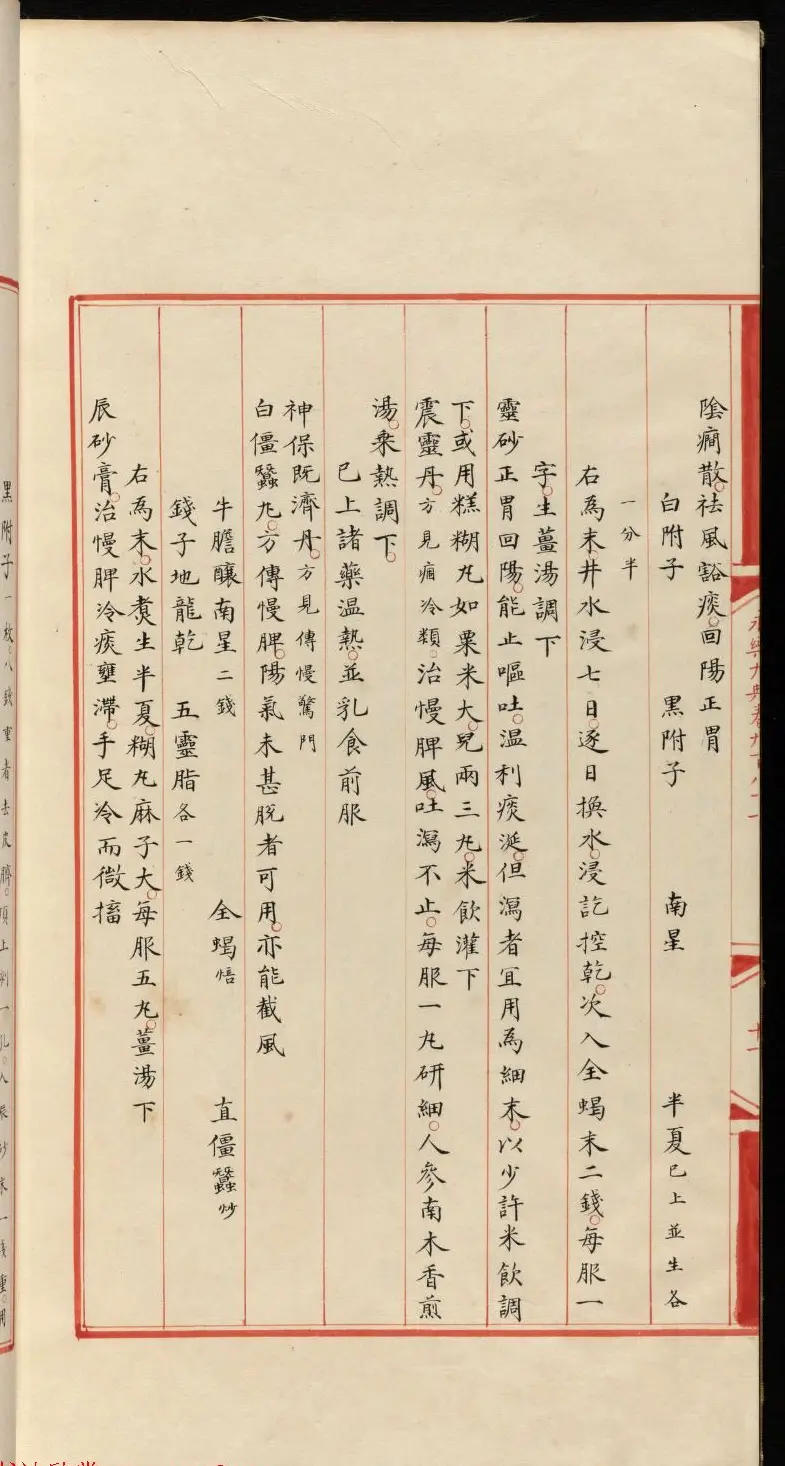 陰癎散。祛風豁痰。回陽正胃
白附子 黑附子 南星 半夏已上並生各
一分半
右為末。井水浸七日。逐日換水。浸訖控乾。次入全蝎末二錢。每服一
字。生薑湯調下
靈砂正胃回陽。能止嘔吐。温利痰涎。但瀉者宜用為細末。以少許米飲調
下。或用糕糊丸如粟米大。兒兩三丸。米飲灌下
震靈丹。方見痼冷類。治慢脾風。吐瀉不止。每服一丸研細。人參南木香煎
湯。乘熱調下。
已上諸藥温熱。並乳食前服
神保既濟丹。方見傳慢驚門
白僵蠶丸。方傳慢脾。陽氣未甚脫者可用。亦能截風
牛膽釀南星二錢 全蝎焙 直僵蠶炒
錢子地龍乾 五靈脂各一錢
右為末。水煑生半夏。糊丸麻子大。每服五丸。薑湯下
辰砂膏。治慢脾冷痰壅滯。手足冷而微搐
黑附子一枚。八錢重者去皮臍。頂上剜一孔。入辰砂末一錢重。用
永樂大典卷九百八十一
十一